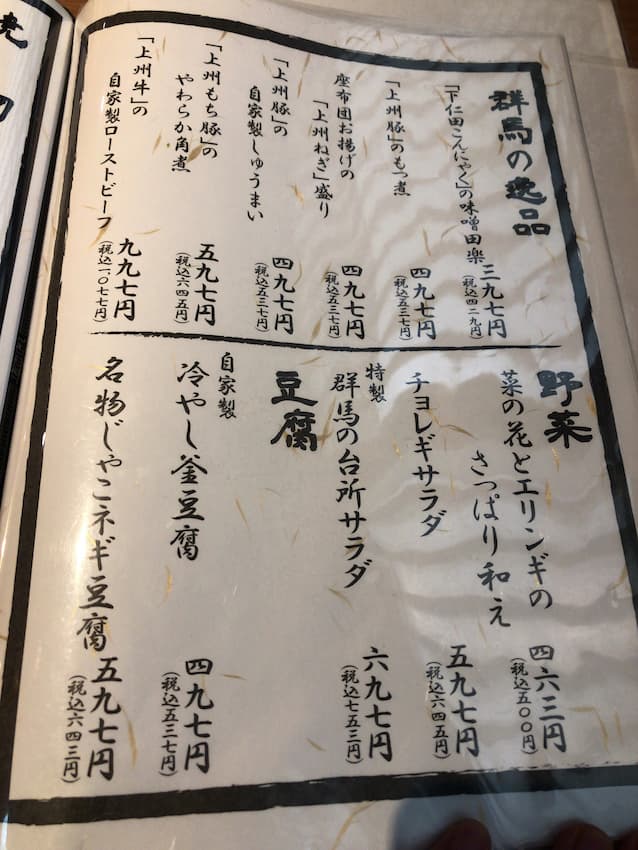 群馬の逸品
「下仁田こんにゃく」の味噌田楽
三九七円
(税込四二九円)
「上州豚」のもつ煮
四九七円
(税込五三七円)
座布団お揚げの
「上州ねぎ」盛り
四九七円
(税込五三七円)
「上州豚」の
自家製しゅうまい
四九七円
(税込五三七円)
「上州もち豚」の
やわらか角煮
五九七円
(税込六四五円)
「上州牛」の
自家製ローストビーフ
九九七円
(税込一、〇七七円)
野菜
菜の花とエリンギの
さっぱり和え
四六三円
(税込五〇〇円)
チョレギサラダ
五九七円
(税込六四五円)
特製
群馬の台所サラダ
六九七円
(税込七五三円)
豆腐
自家製
冷やし釜豆腐
四九七円
(税込五三七円)
名物じゃこネギ豆腐
五九七円
(税込六四三円)